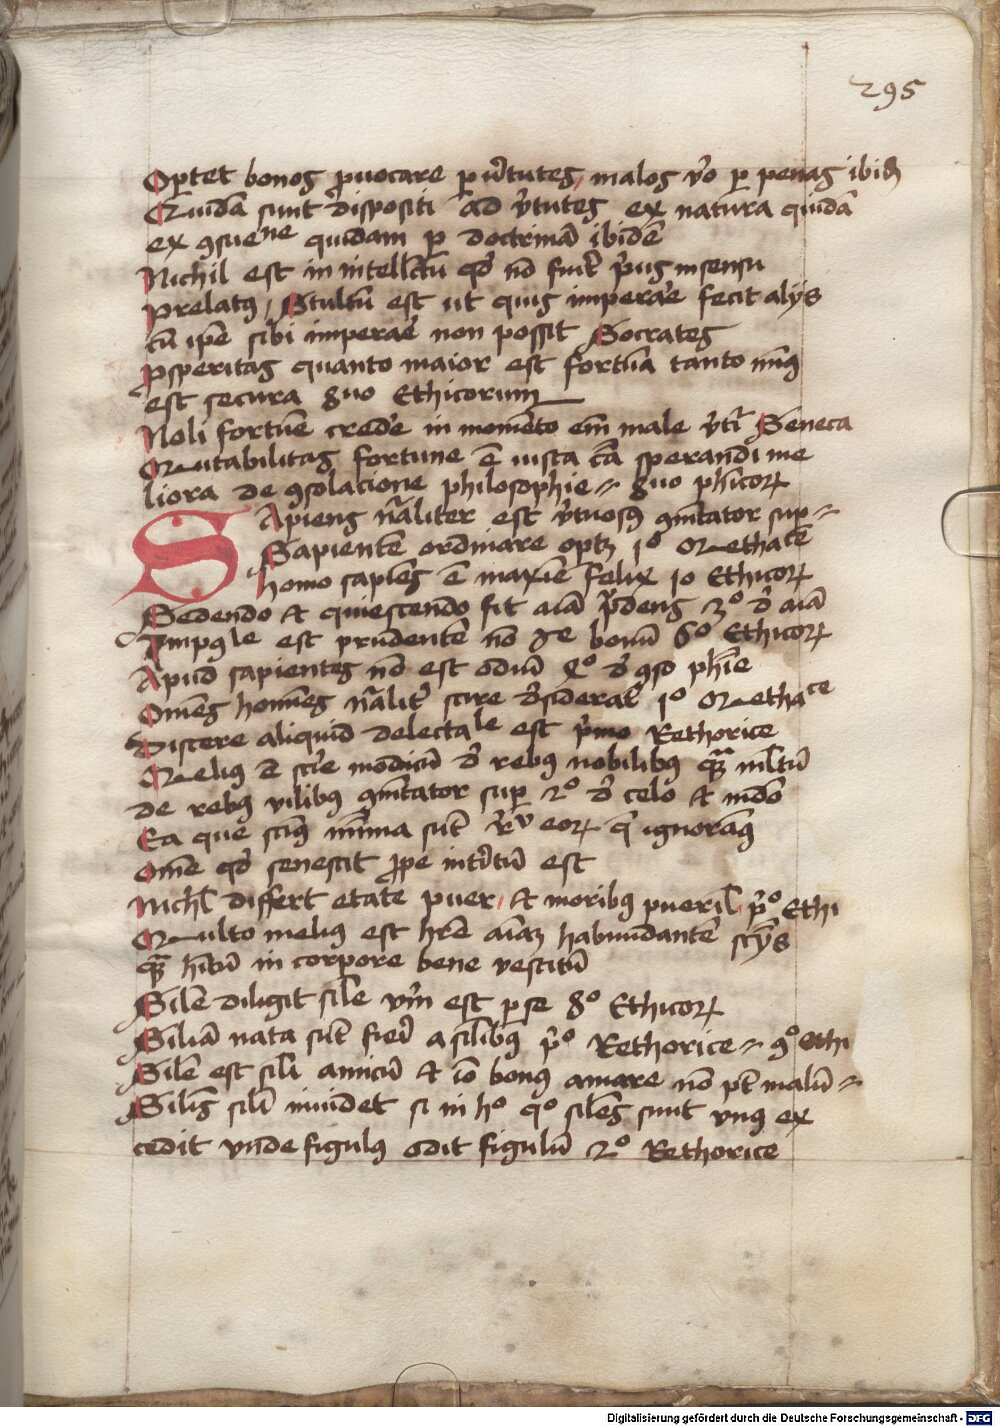 295
Optet bonos p̄uocare p̱ v̓tutes, malos v̓o p̱ penas ibid̄
Quidā sunt dispositi ad v̓tutes ex natura quidā
ex ꝯsueⁿᵉ quidam p̱ doctrinā ibidē
Nichil est in intellc̄tu qd̓ nō fuit p̓us in sensu
Prelatꝰ, Stultū est ut quis imperar̓e fecit alijs
cū ip̄e sibi imperar̓e non possit Socrates
ꝓsperitas quanto maior est fortūa tanto mīꝰ
est secura 8uo Ethicorum
Noli fortūe crede̓ in momēto em̄ male v̓ti᷑ Seneca
Mutabilitas fortune ē iusta cā sperandi me
liora de ꝯsolacione philosophie 8uo ph̄icoꝝ
Sapiens nāliter est v̓tuosꝰ ꝯmētator sup̱
Sapientē ordinare optꝫ 1º Methaᶜᵉ
Homo sapiēs ē maxīe felix 10 Ethicoꝝ
Sedendo et quiescendo fit aīa p̓dens 3º d̓ aīa
Impꝯˡᵉ est prudentē nō ēe bonū 6º Ethicoꝝ
Apud sapientes nō est odiū 4º d̓ ꝯso ph̄ie
Om̄es homīes nālit̓ scire d̓siderāt 1º Methaᶜᵉ
Discere aliquid delectaˡᵉ est p̓mo Rethorice
Meliꝰ ē sci̓e modicū d̓ rebꝰ nobilibꝰ qᷓꝫ ml̄tū
de rebꝰ vilibꝰ ꝯmētator sup̱ 2º d̓ celo et mūdo
Ea que scimꝰ mīma sūt eoꝝ q̄ ignoramꝰ
Om̄e qd̓ senescit ꝓpe int̓itū est
Nich̄l differt etate puer, et moribꝰ pueril̄, p̓º Ethi
Multo meliꝰ est hr̄e aīaꝫ habundantē sci̓js
qᷓꝫ hītū in corpore bene vestitū
Sīle diligit sīle vn̄ est p̱ se 8º Ethicoꝝ
Silīa nata sūt fieri̓ a silībꝰ p̓º Rethorice 9º ethi
Sīle est sīli amicū et iō bonꝰ amare nō pt̄ malū
Silīs silī inuidet si in hº qº silēs sunt vnꝰ ex
cedit vnde figulꝰ odit figulū 2º Rethorice
Digitalisierung gefördert durch die Deutsche Forschungsgemeinschaft - DFG